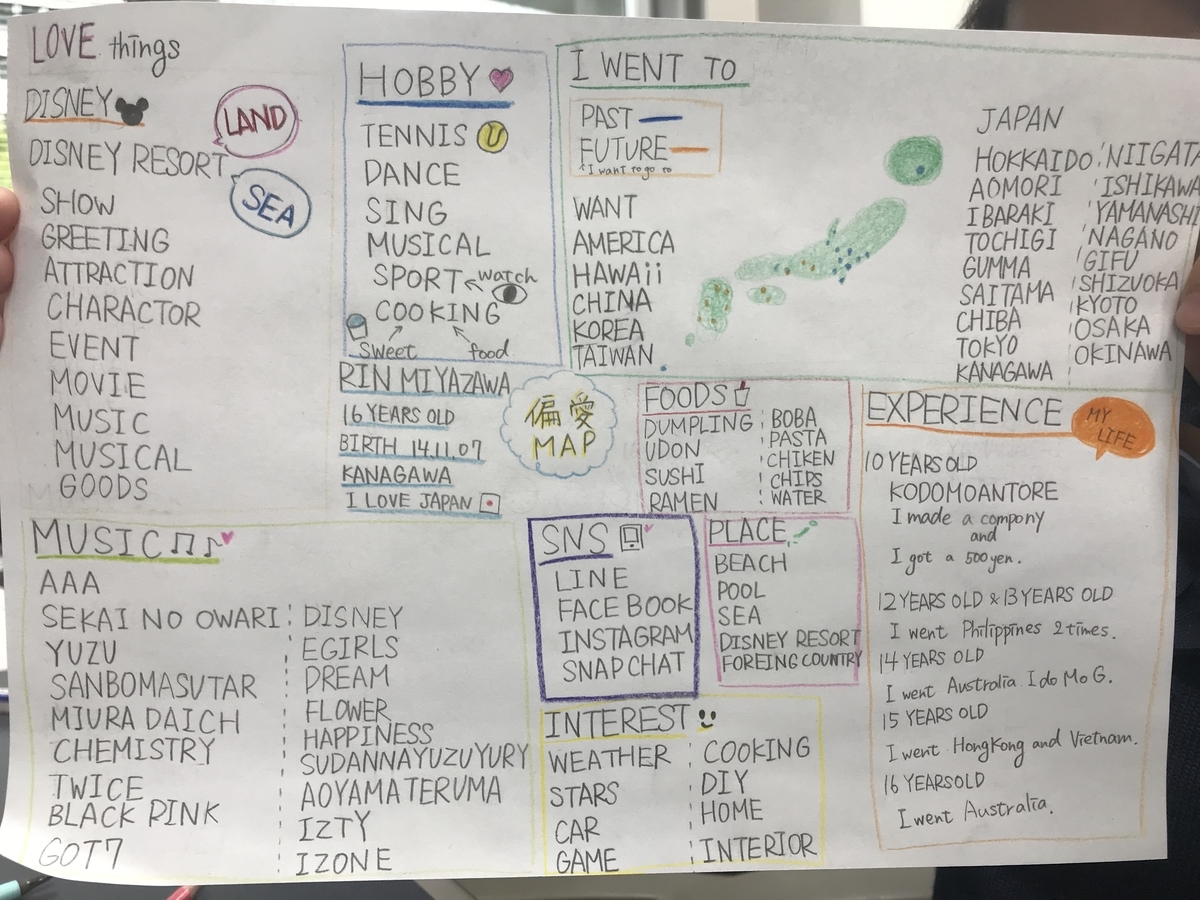 LOVE things
DISNEY
LAND
DISNEY RESORT
SEA
SHOW
GREETING
ATTRACTION
CHARACTOR
EVENT
MOVIE
MUSIC
MUSICAL
GOODS
HOBBY
TENNIS
DANCE
SING
MUSICAL
SPORT ← watch
COOKING
sweet food
I WENT TO
PAST
FUTURE
↑I want to go to
WANT
AMERICA
HAWAii
CHINA
KOREA
TAIWAN
JAPAN
HOKKAIDO
AOMORI
IBARAKI
TOCHIGI
GUMMA
SAITAMA
CHIBA
TOKYO
KANAGAWA
NIIGATA
ISHIKAWA
YAMANASHI
NAGANO
GIFU
SHIZUOKA
KYOTO
OSAKA
OKINAWA
RIN MIYAZAWA
16 YEARS OLD
BIRTH 14.11.07
KANAGAWA
I LOVE JAPAN
偏愛
MAP
FOODS
DUMPLING
UDON
SUSHI
RAMEN
BOBA
PASTA
CHIKEN
CHIPS
WATER
EXPERIENCE
MY
LIFE
10 YEARS OLD
KODOMOANTORE
I made a compony
and
I got a 500 yen.
12 YEARS OLD & 13 YEARS OLD
I went Philippines 2 times.
14 YEARS OLD
I went Australia I do MoG.
15 YEARS OLD
I went HongKong and Vietnam.
16 YEARSOLD
I went Australia.
MUSIC
AAA
SEKAI NO OWARI
YUZU
SANBOMASUTAR
MIURA DAICH
CHEMISTRY
TWICE
BLACK PINK
GOT7
DISNEY
EGIRLS
DREAM
FLOWER
HAPPINESS
SUDANNAYUZUYURY
AOYAMATERUMA
IZTY
IZONE
SNS
LINE
FACE BOOK
INSTAGRAM
SNAPCHAT
PLACE
BEACH
POOL
SEA
DISNEY RESORT
FOREING COUNTRY
INTEREST
WEATHER
STARS
CAR
GAME
COOKING
DIY
HOME
INTERIOR